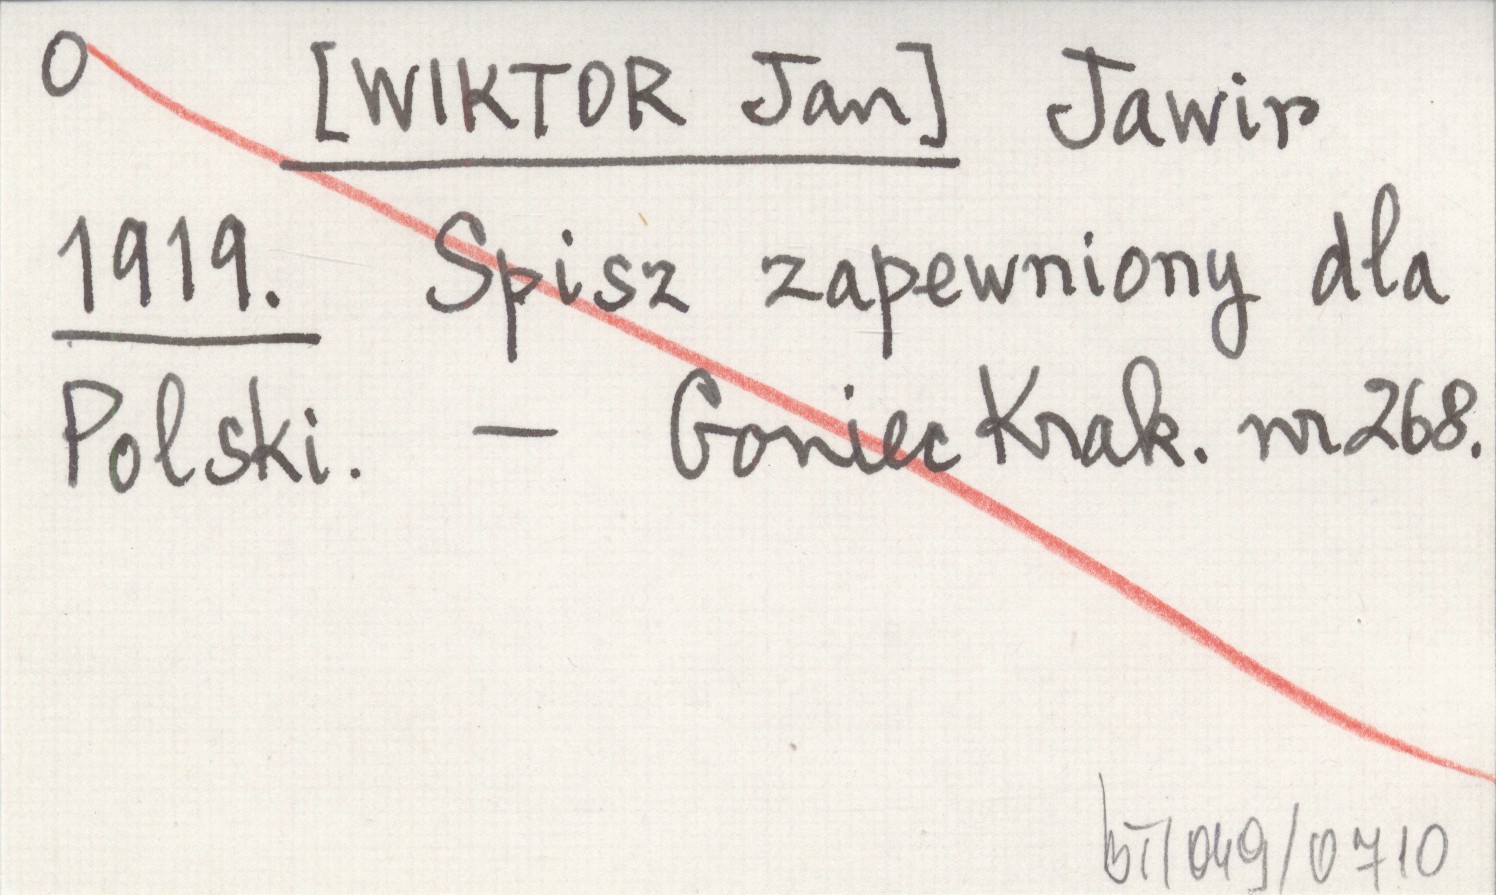 O [WIKTOR Jan] Jawir
1919. Spisz zapewniony dla
Polski. — Goniec Krak. nr 268.
bT/049/0710